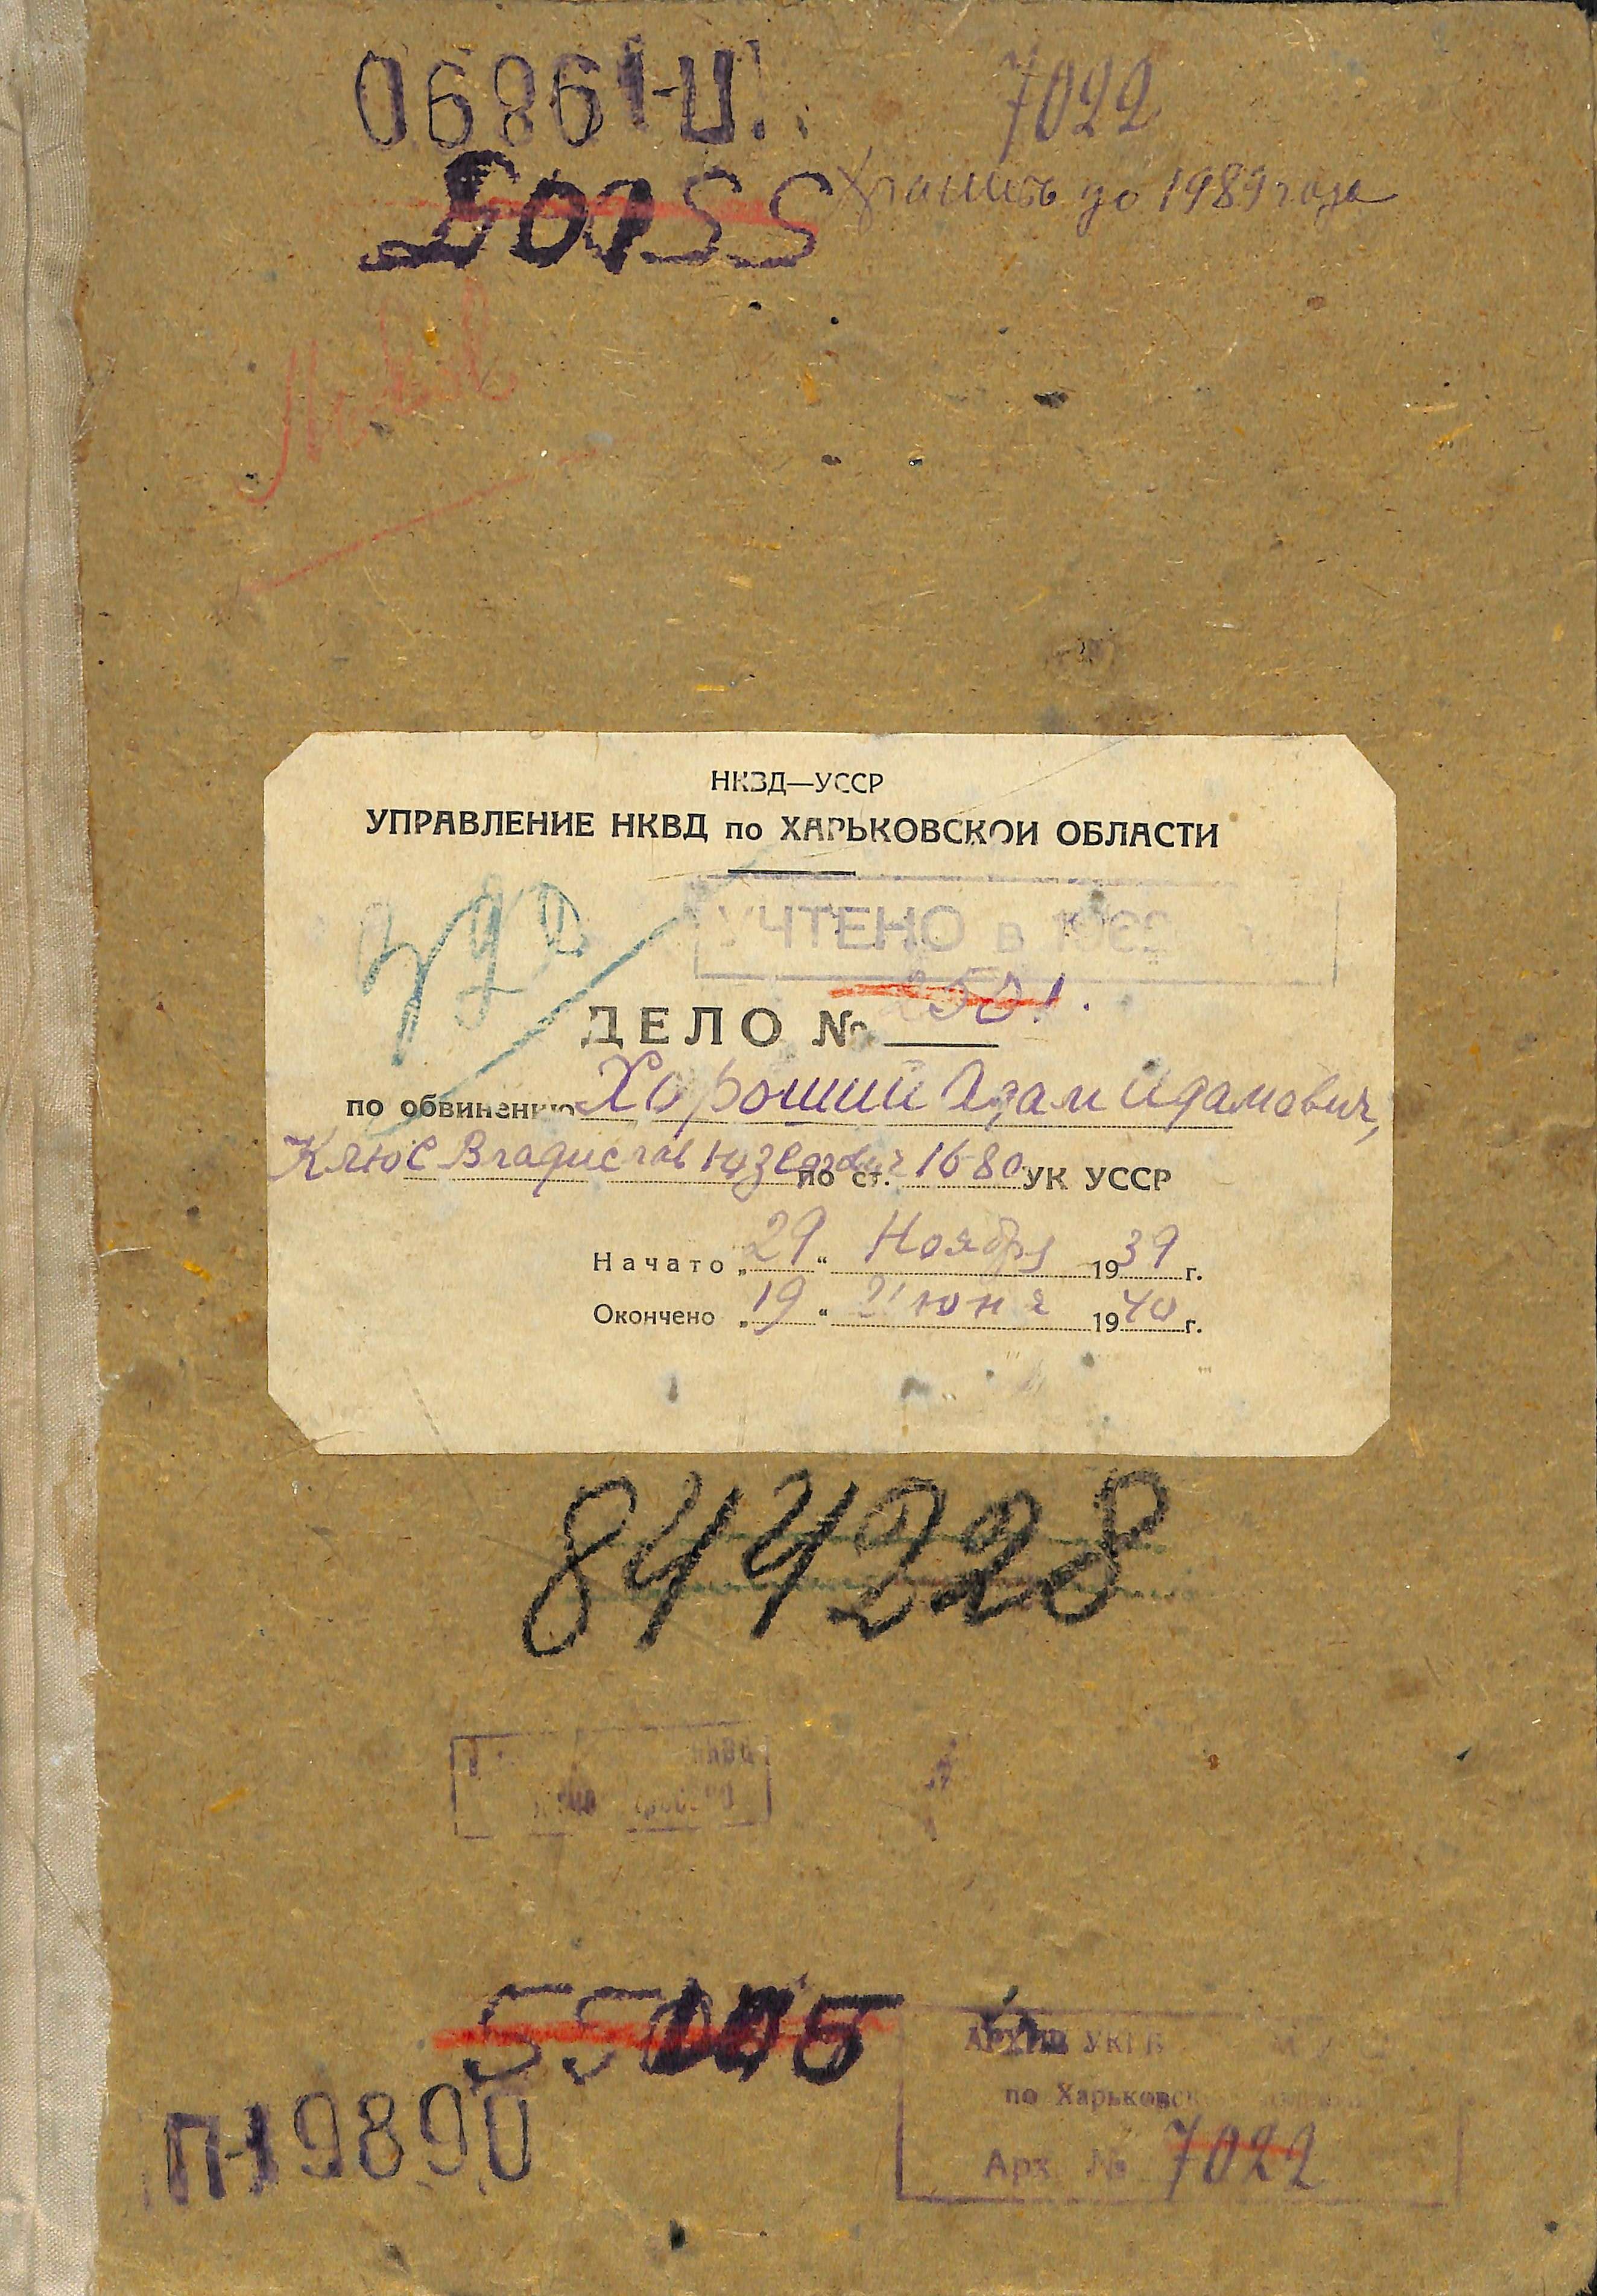 7022
Хранить до 1989 года
НКВД—УССР
УПРАВЛЕНИЕ НКВД по ХАРЬКОВСКОЙ ОБЛАСТИ
УЧТЕНО в
ДЕЛО №
по обвинению Хороший Адам Адамович,
Клюс Владислав Юзефович по ст. 16-80 УК УССР
Начато „29“ Ноября 1939 г.
Окончено „19“ Июня 1940 г.
844228
П-19890
АРХИВ УКГБ
по Харьковск
Арх. № 7022